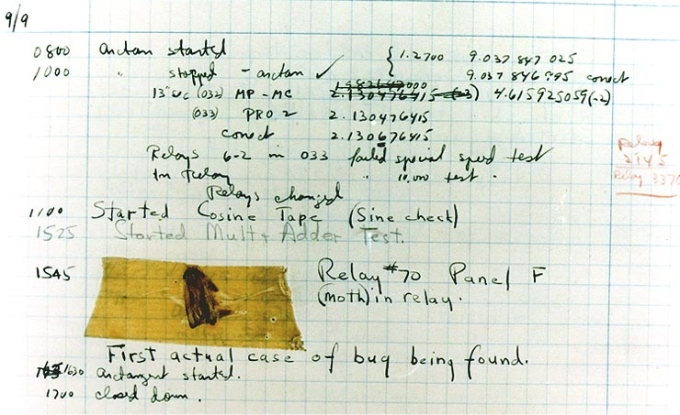 9/9
0800 Antan started
1000 " stopped - antan ✓ { 1.2700 9.037 847 025
9.037 846 995 correct
13" uc (032) MP - MC 2.130476415 (-3) 4.615925059(-2)
(033) PRO 2 2.130476415
correct 2.130676415
Relays 6-2 in 033 failed special speed test
in Relay " 10,000 test.
Relay
2145
Relay 3370
Relays changed
1100 Started Cosine Tape (Sine check)
1525 Started Mult + Adder Test.
1545 Relay #70 Panel F
(moth) in relay.
First actual case of bug being found.
1630 Antangent started.
1700 closed down.